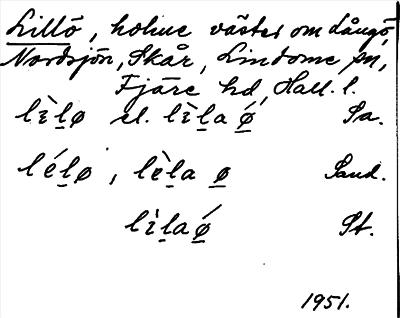 Lillö, holme väster om Långö,
Nordsjön, Skår, Lindome sn,
Fjäre hd, Hall. l.
lì̱lø el. lì̱la ǿ̱ Sa.
lé̱lø, lè̱la ø̱ Sand.
lì̱laǿ̱ St.
1951.